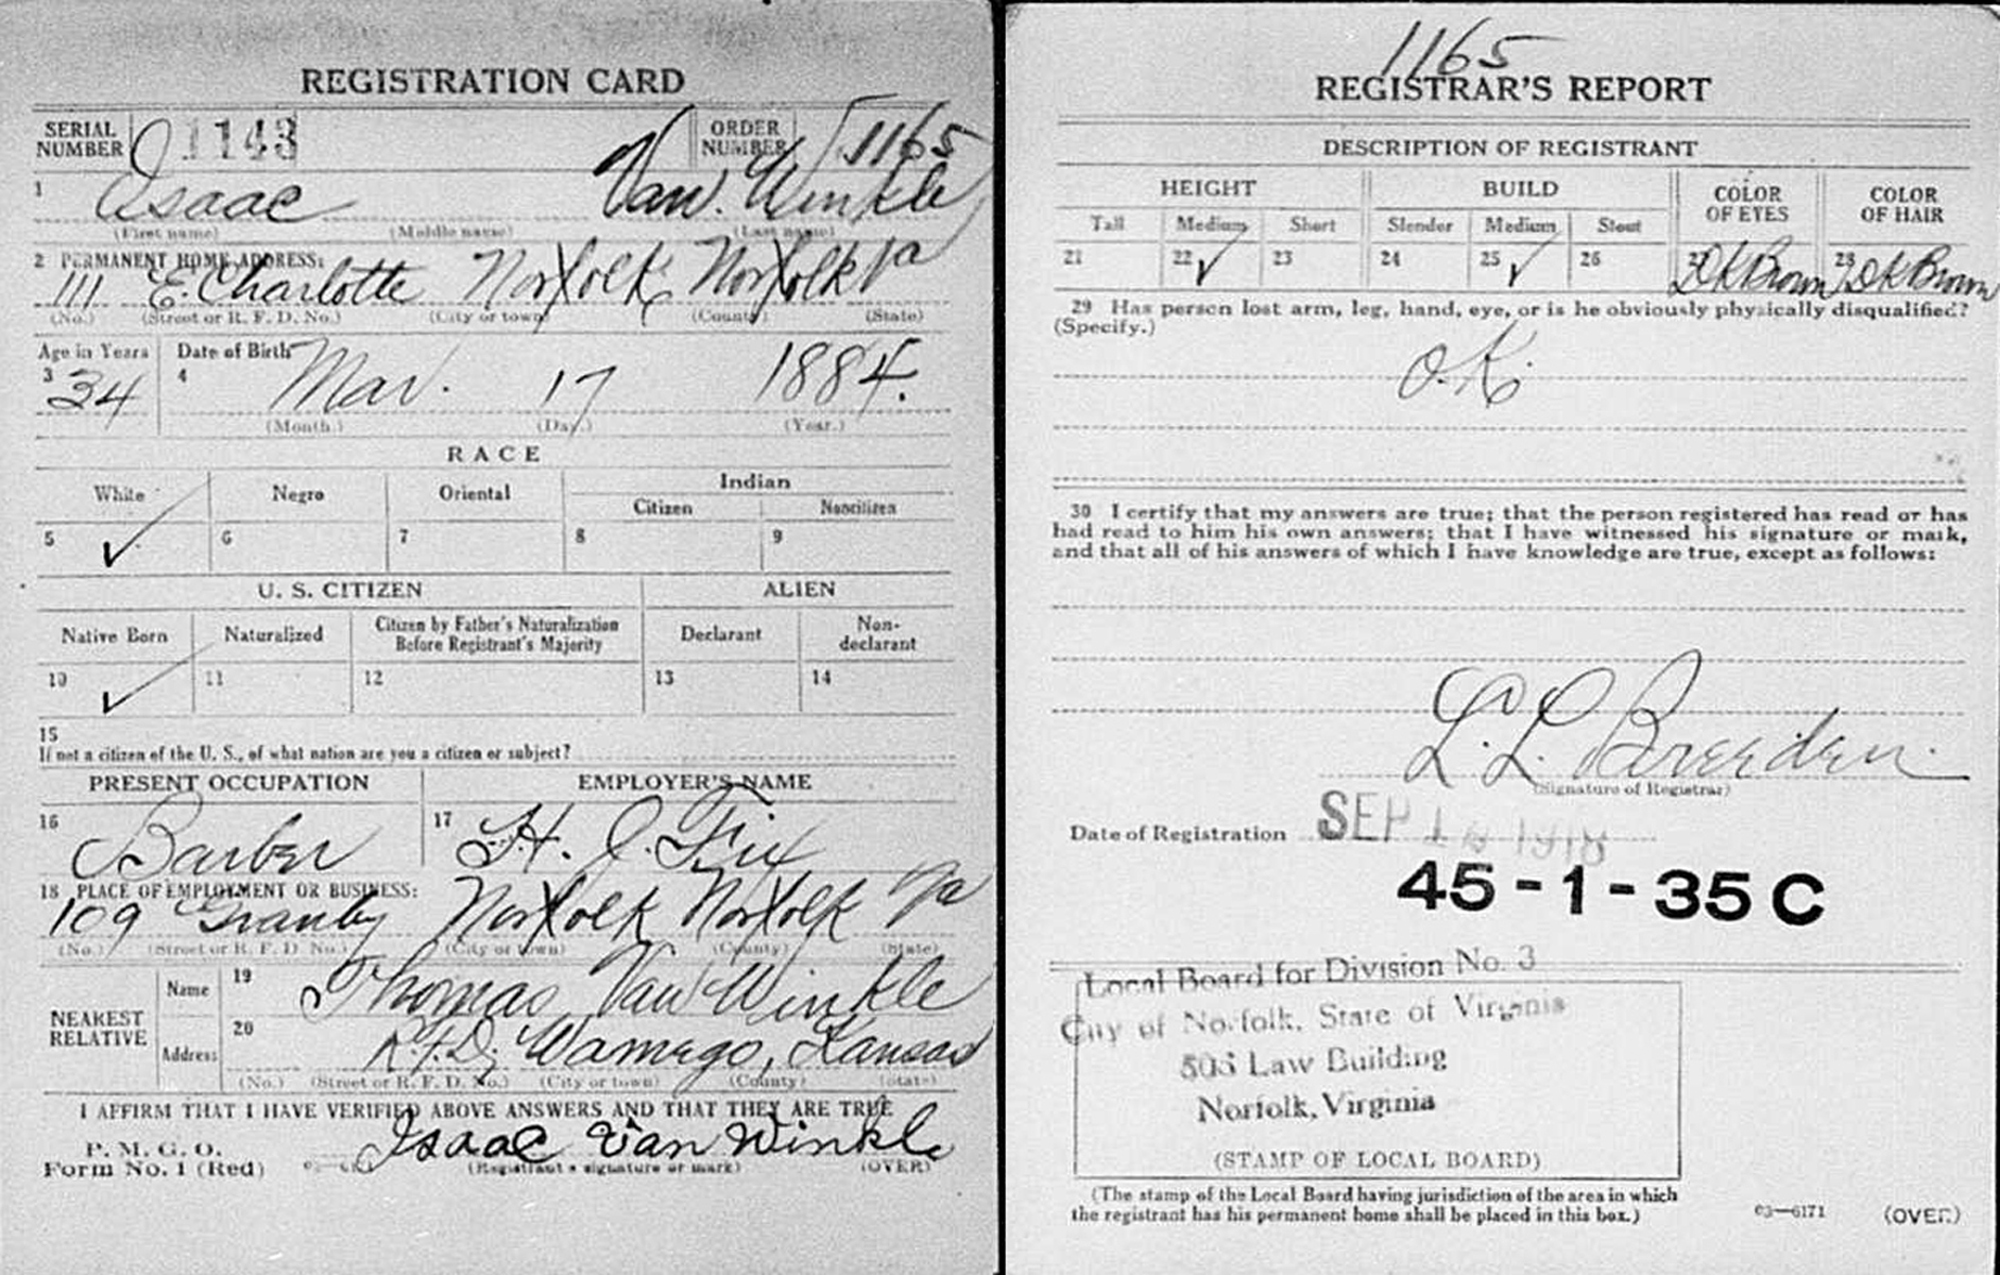 REGISTRATION CARD
SERIAL NUMBER 1143 ORDER NUMBER 1165
1 Isaac Van Winkle
(First name) (Middle name) (Last name)
2 PERMANENT HOME ADDRESS:
111 E. Charlotte Norfolk Norfolk Va
(No.) (Street or R. F. D. No.) (City or town) (County) (State)
Age in Years Date of Birth
3 34 4 Mar. 17 1884.
(Month.) (Day.) (Year.)
RACE
White Negro Oriental Indian
Citizen Noncitizen
5 ✓ 6 7 8 9
U. S. CITIZEN ALIEN
Native Born Naturalized Citizen by Father's Naturalization Before Registrant's Majority Declarant Non-declarant
10 ✓ 11 12 13 14
15
If not a citizen of the U. S., of what nation are you a citizen or subject?
PRESENT OCCUPATION EMPLOYER'S NAME
16 Barber 17 H. J. Fix
18 PLACE OF EMPLOYMENT OR BUSINESS:
109 Granby Norfolk Norfolk Va
(No.) (Street or R. F. D. No.) (City or town) (County) (State)
NEAREST RELATIVE
Name 19 Thomas Van Winkle
Address 20 R.F.D. Wamego, Kansas
(No.) (Street or R. F. D. No.) (City or town) (County) (State)
I AFFIRM THAT I HAVE VERIFIED ABOVE ANSWERS AND THAT THEY ARE TRUE
P. M. G. O.
Form No. 1 (Red) Isaac Van Winkle
(Registrant's signature or mark) (OVER)
1165
REGISTRAR'S REPORT
DESCRIPTION OF REGISTRANT
HEIGHT BUILD COLOR OF EYES COLOR OF HAIR
Tall Medium Short Slender Medium Stout
21 22 ✓ 23 24 25 ✓ 26 27 DK Brown 28 DK Brown
29 Has person lost arm, leg, hand, eye, or is he obviously physically disqualified?
(Specify.)
O.K.
30 I certify that my answers are true; that the person registered has read or has
had read to him his own answers; that I have witnessed his signature or mark,
and that all of his answers of which I have knowledge are true, except as follows:
L. L. Breeden.
(Signature of Registrar)
Date of Registration SEP 1918
45-1-35 C
Local Board for Division No. 3
City of Norfolk, State of Virginia
Law Building
Norfolk, Virginia
(STAMP OF LOCAL BOARD)
(The stamp of the Local Board having jurisdiction of the area in which
the registrant has his permanent home shall be placed in this box.)
03—6171 (OVER)